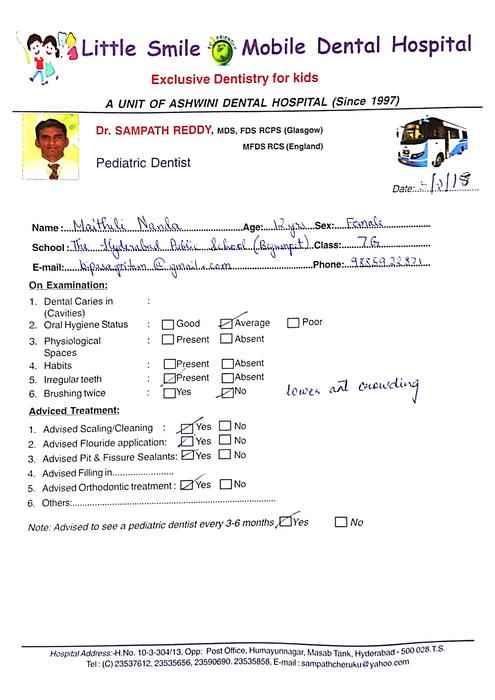 Little Smile Mobile Dental Hospital
Exclusive Dentistry for kids
A UNIT OF ASHWINI DENTAL HOSPITAL (Since 1997)
Dr. SAMPATH REDDY, MDS, FDS RCPS (Glasgow)
MFDS RCS (England)
Pediatric Dentist
Date:
Name: Maithili Nanda Age: 12 yrs Sex: Female
School: The Hyderabad Public School (Begumpet) Class: 7G
E-mail: @gmail.com Phone:
On Examination:
1. Dental Caries in :
(Cavities)
2. Oral Hygiene Status : Good Average Poor
3. Physiological : Present Absent
Spaces
4. Habits : Present Absent
5. Irregular teeth : Present Absent
6. Brushing twice : Yes No lower ant crowding
Adviced Treatment:
1. Advised Scaling/Cleaning : Yes No
2. Advised Flouride application: Yes No
3. Advised Pit & Fissure Sealants: Yes No
4. Advised Filling in
5. Advised Orthodontic treatment : Yes No
6. Others:
Note: Advised to see a pediatric dentist every 3-6 months Yes No
Hospital Address:-H.No. 10-3-304/13, Opp: Post Office, Humayunnagar, Masab Tank, Hyderabad - 500 028.T.S.
Tel : (C) 23537612, 23535656, 23590690. 23535858, E-mail : sampathcheruku@yahoo.com